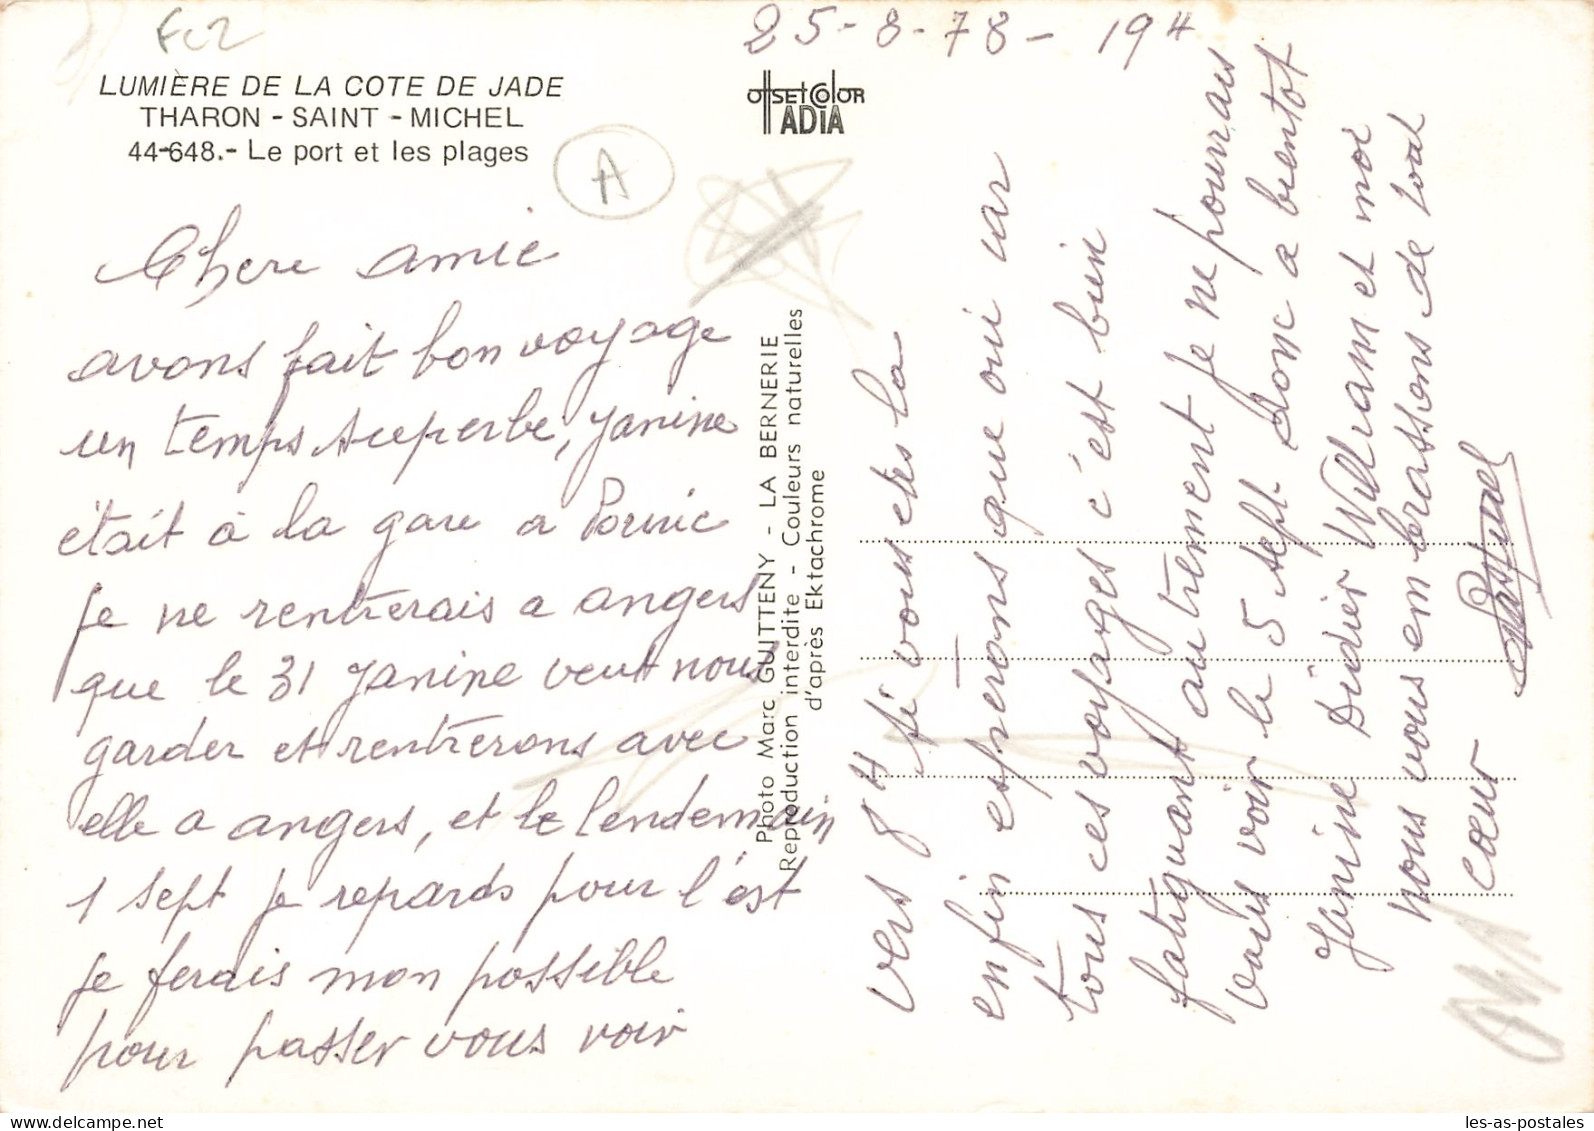 Fc2
25-8-78- 19H
LUMIÈRE DE LA COTE DE JADE
THARON - SAINT - MICHEL
44-648.- Le port et les plages
A
OffSETCOlOR
ADIA
Chere amie
avons fait bon voyage
un temps superbe, Janine
était à la gare a Pornic
je ne rentrerais a angers
que le 31 Janine veut nous
garder et rentrerons avec
elle a angers, et le lendemain
1 sept je repards pour l'est
je ferais mon possible
pour passer vous voir
Photo Marc GUITTENY - LA BERNERIE
Reproduction interdite - Couleurs naturelles
d'après Ektachrome
vers 8H si vous etes la
enfin esperons que oui car
tous ces voyages c'est bien
fatiguant autrement je ne pourrais
vous voir le 5 sept. Donc a bientot
Janine Didier William et moi
nous vous embrassons de tout
cœur
les-as-postales.com